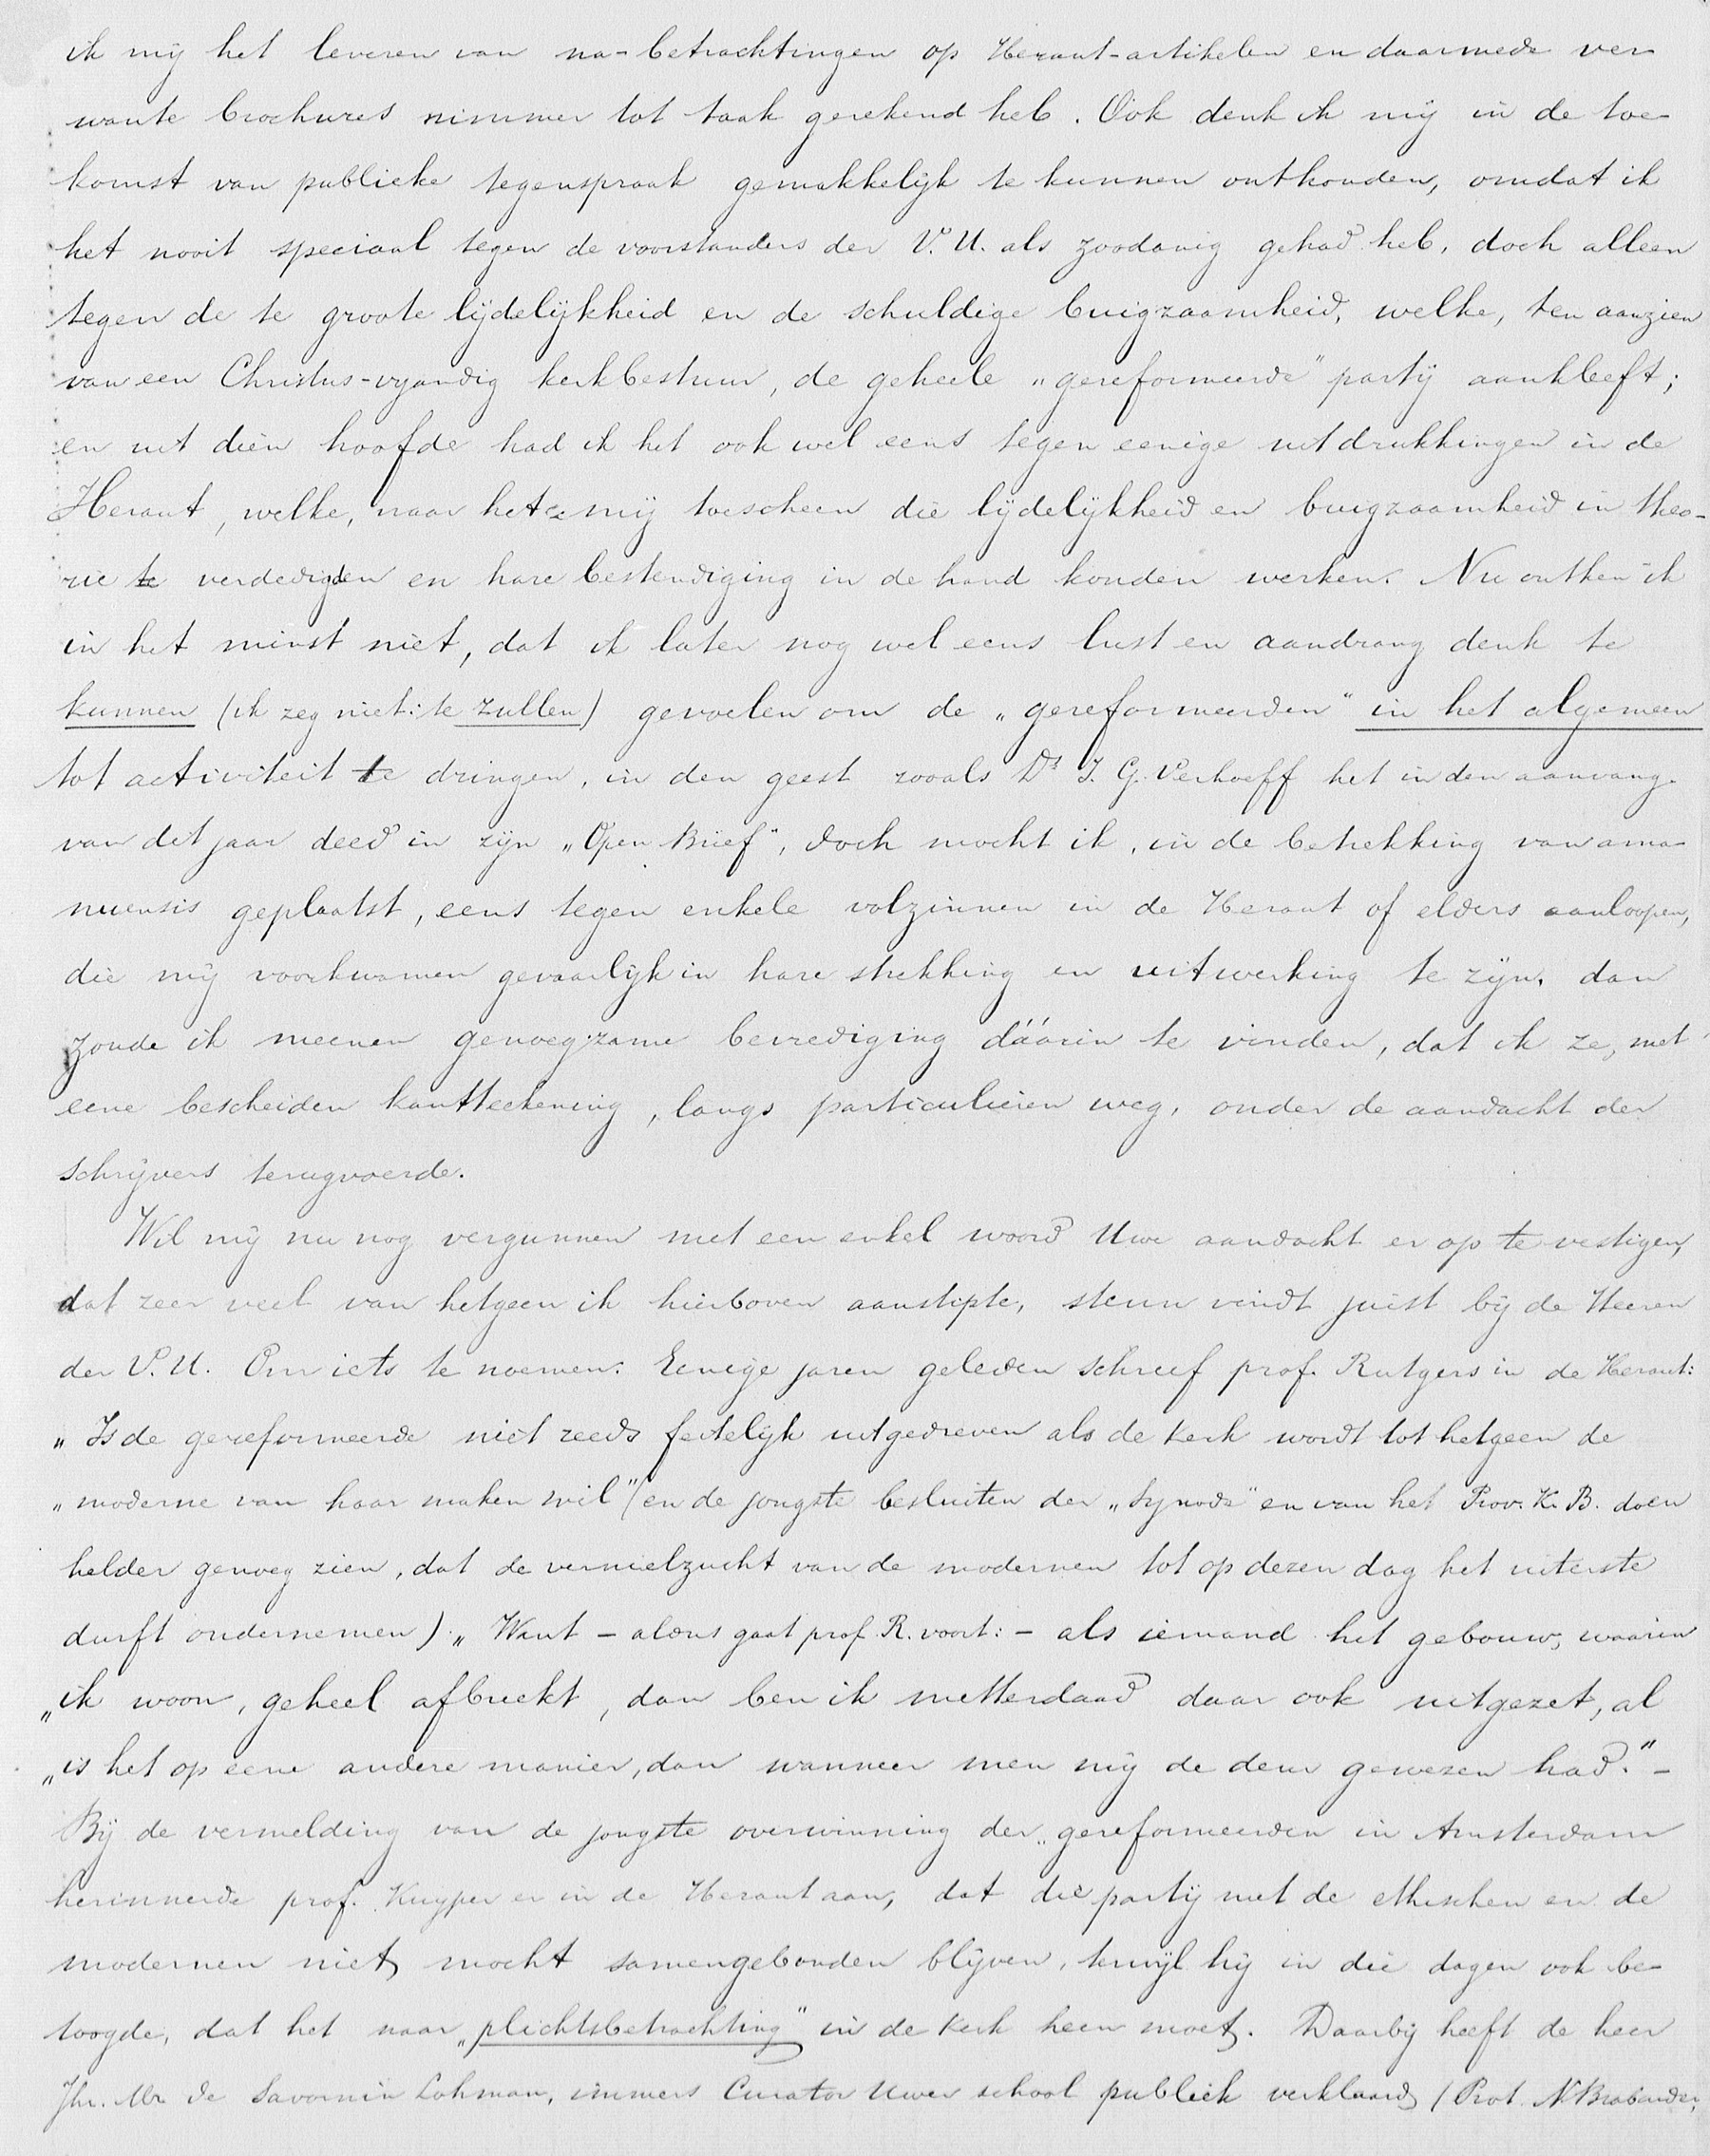 ik mij het leveren van na-betrachtingen op Heraut-artikelen en daarmede ver-
wante brochures nimmer tot taak gerekend heb. Ook denk ik mij in de toe-
komst van publieke tegenspraak gemakkelijk te kunnen onthouden, omdat ik
het nooit speciaal tegen de voorstanders der V. U. als zoodanig gehad heb, doch alleen
tegen de te groote lijdelijkheid en de schuldige buigzaamheid, welke, ten aanzien
van een Christus-vyandig kerkbestuur, de geheele „gereformeerde" partij aankleeft;
en uit dien hoofde had ik het ook wel eens tegen eenige uitdrukkingen in de
Heraut, welke, naar het mij toescheen die lijdelijkheid en buigzaamheid in theo-
rie verdedigden en hare bestendiging in de hand konden werken. Nu ontken ik
in het minst niet, dat ik later nog wel eens lust en aandrang denk te
kunnen (ik zeg niet: te zullen) gevoelen om de „gereformeerden" in het algemeen
tot activiteit te dringen, in den geest zooals Ds J. G. Verhoeff het in den aanvang
van dit jaar deed in zijn „Open Brief", doch mocht ik, in de betrekking van ama-
nuensis geplaatst, eens tegen enkele volzinnen in de Heraut of elders aanloopen,
die mij voorkwamen gevaarlijk in hare strekking en uitwerking te zijn, dan
zoude ik meenen genoegzame bevrediging dáárin te vinden, dat ik ze, met
eene bescheiden kantteekening, langs particulieren weg, onder de aandacht der
schrijvers terugvoerde.
Wil mij nu nog vergunnen met een enkel woord Uwe aandacht er op te vestigen,
dat zeer veel van hetgeen ik hierboven aanstipte, steun vindt juist bij de Heeren
der V. U. Om iets te noemen. Eenige jaren geleden schreef prof. Rutgers in de Heraut:
„Is de gereformeerde niet reeds feitelijk uitgedreven als de kerk wordt tot hetgeen de
„moderne van haar maken wil" (en de jongste besluiten der „Synode" en van het Prov. K. B. doen
helder genoeg zien, dat de vernielzucht van de modernen tot op dezen dag het uiterste
durft ondernemen). „Want – aldus gaat prof. R. voort: – als iemand het gebouw, waarin
„ik woon, geheel afbreekt, dan ben ik metterdaad daar ook uitgezet, al
„is het op eene andere manier, dan wanneer men mij de deur gewezen had." –
Bij de vermelding van de jongste overwinning der „gereformeerden in Amsterdam
herinnerde prof. Kuyper er in de Heraut aan, dat die partij met de ethischen en de
modernen niet mocht samengebonden blijven, terwijl hij in die dagen ook be-
toogde, dat het naar „plichtsbetrachting" in de kerk heen moet. Daarbij heeft de heer
Jhr. Mr. de Savornin Lohman, immers Curator Uwer school publiek verklaard (Prot. N. Brabander,